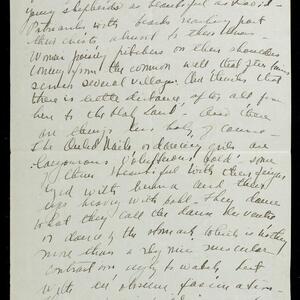 young shepherds as beautiful as David –
Patriarchs with beards reaching past
their waists almost to their knees
Women poising pitchers on their shoulders
coming from the common well that sometimes
serves several villages. And therefore that
there is little distance, after all from
here to the Holy Land, and there
are things less holy, of course –
The Ouled Naïls, or dancing girls are
, some
of them beautiful with their fingers
dyed with henna and their
eyes heavy with kohl – They dance
what they call the danse du ventre
or dance of the stomach which is nothing
more than a rhythmic muscular
contraction, ugly to watch, but
with an obscene fascination –